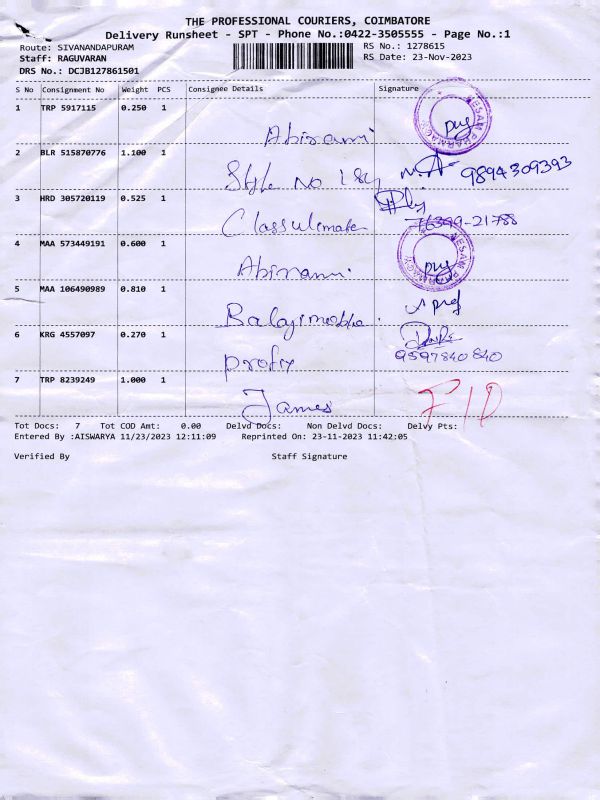 THE PROFESSIONAL COURIERS, COIMBATORE
Delivery Runsheet - SPT - Phone No.:0422-3505555 - Page No.:1
Route: SIVANANDAPURAM RS No.: 1278615
Staff: RAGUVARAN RS Date: 23-Nov-2023
DRS No.: DCJB127861501
S No Consignment No Weight PCS Consignee Details Signature
1 TRP 5917115 0.250 1
Abirami VESAM PHARMACY
2 BLR 515870776 1.100 1
Style No 9894309393
3 HRD 305720119 0.525 1
76399-21788
4 MAA 573449191 0.600 1
Abirami VESAM PHARMACY
5 MAA 106490989 0.810 1
6 KRG 4557097 0.270 1
9597840840
7 TRP 8239249 1.000 1
James
Tot Docs: 7 Tot COD Amt: 0.00 Delvd Docs: Non Delvd Docs: Delvy Pts:
Entered By :AISWARYA 11/23/2023 12:11:09 Reprinted On: 23-11-2023 11:42:05
Verified By Staff Signature